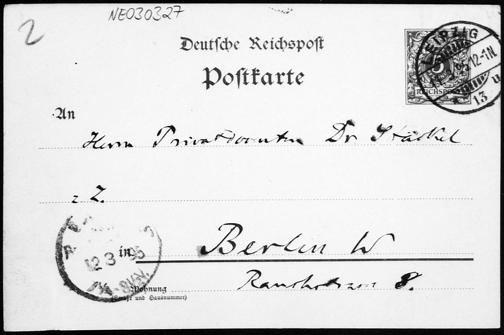 2
NE030327
Deutsche Reichspost
Postkarte
LEIPZIG
5
REICHSPOST
13
An
Herrn Privatdocenten Dr Stäckel
z. Z.
12 3 95
in Berlin W
8.
Wohnung
(Straße und Hausnummer)